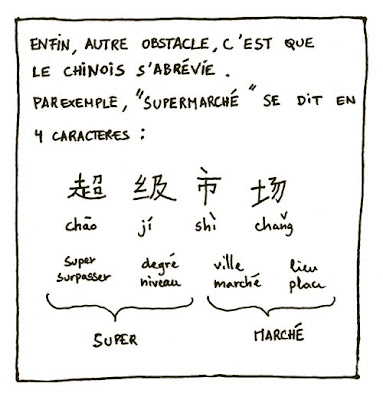 ENFIN, AUTRE OBSTACLE, C'EST QUE
LE CHINOIS S'ABRÉVIE.
PAR EXEMPLE, "SUPERMARCHÉ" SE DIT EN
4 CARACTERES :
超 级 市 场
chāo jí shì chǎng
super degré ville lieu
surpasser niveau marché place
SUPER MARCHÉ